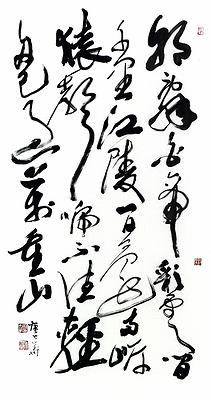 朝辞白帝彩云间
千里江陵一日还两岸
猿声啼不住轻
舟已过万重山